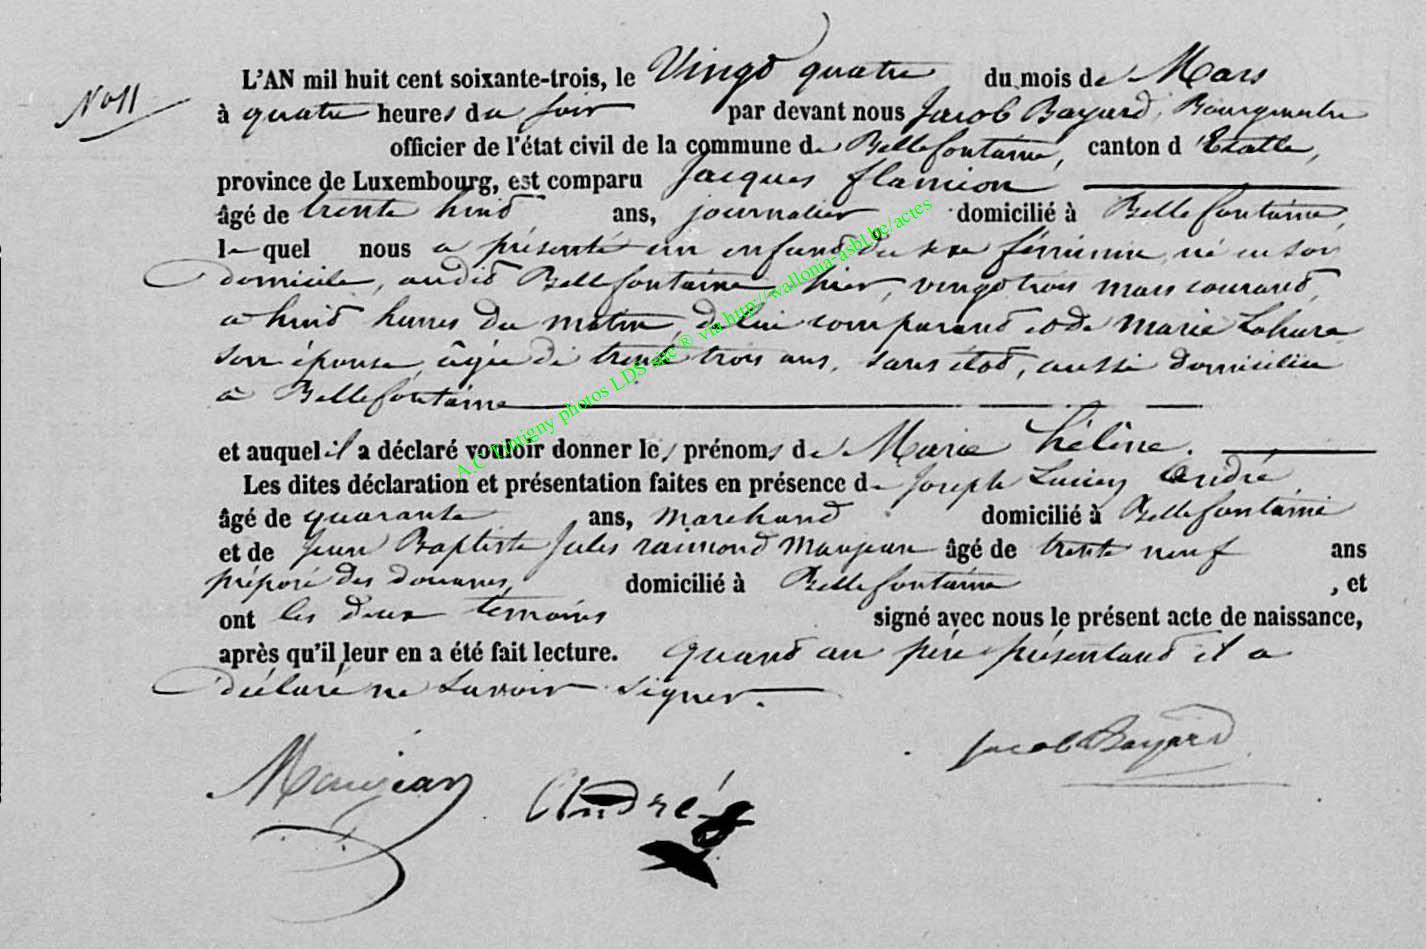 L'AN mil huit cent soixante-trois, le Vingt quatre du mois de Mars
N° 11
à quatre heures du soir par devant nous Jacob Bayard, Bourgmestre
officier de l'état civil de la commune de Bellefontaine, canton d'Etalle,
province de Luxembourg, est comparu Jacques flamion
âgé de trente huit ans, journalier domicilié à Bellefontaine,
lequel nous a présenté un enfant du sexe féminin, né en son
domicile, audit Bellefontaine hier, vingt trois mars courant,
à huit heures du matin, de lui comparant et de Marie Lahure
son épouse, âgée de trente trois ans, sans état, aussi domiciliée
à Bellefontaine
et auquel il a déclaré vouloir donner les prénoms de Marie hélène.
Les dites déclaration et présentation faites en présence de Joseph Lucien André
âgé de quarante ans, marchand domicilié à Bellefontaine
et de Jean Baptiste Jules raimond Maujean âgé de trente neuf ans
préposé des douanes, domicilié à Bellefontaine, et
ont les deux temoins signé avec nous le présent acte de naissance,
après qu'il leur en a été fait lecture. quant au père présentant il a
déclaré ne savoir signer.
Maujean André Jacob Bayard
A.C. Tintigny photos LDS asc ® via http://wallonia-asbl.be/actes